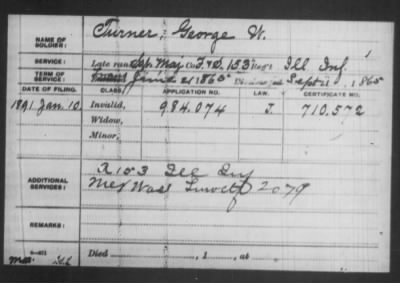 NAME OF SOLDIER: Turner, George W.
SERVICE: Late rank Sgt. Maj Co. F.&S. 153 Reg't Ill Inf. 1
TERM OF SERVICE: June 21, 1865 Sept 1865
DATE OF FILING. CLASS. APPLICATION NO. CERTIFICATE NO.
1891 Jan. 10 Invalid, 984.074 J. 710.572
Widow,
Minor,
ADDITIONAL SERVICES: K 153 Ill Inf
Mex War 2079
REMARKS:
Died , 1 , at